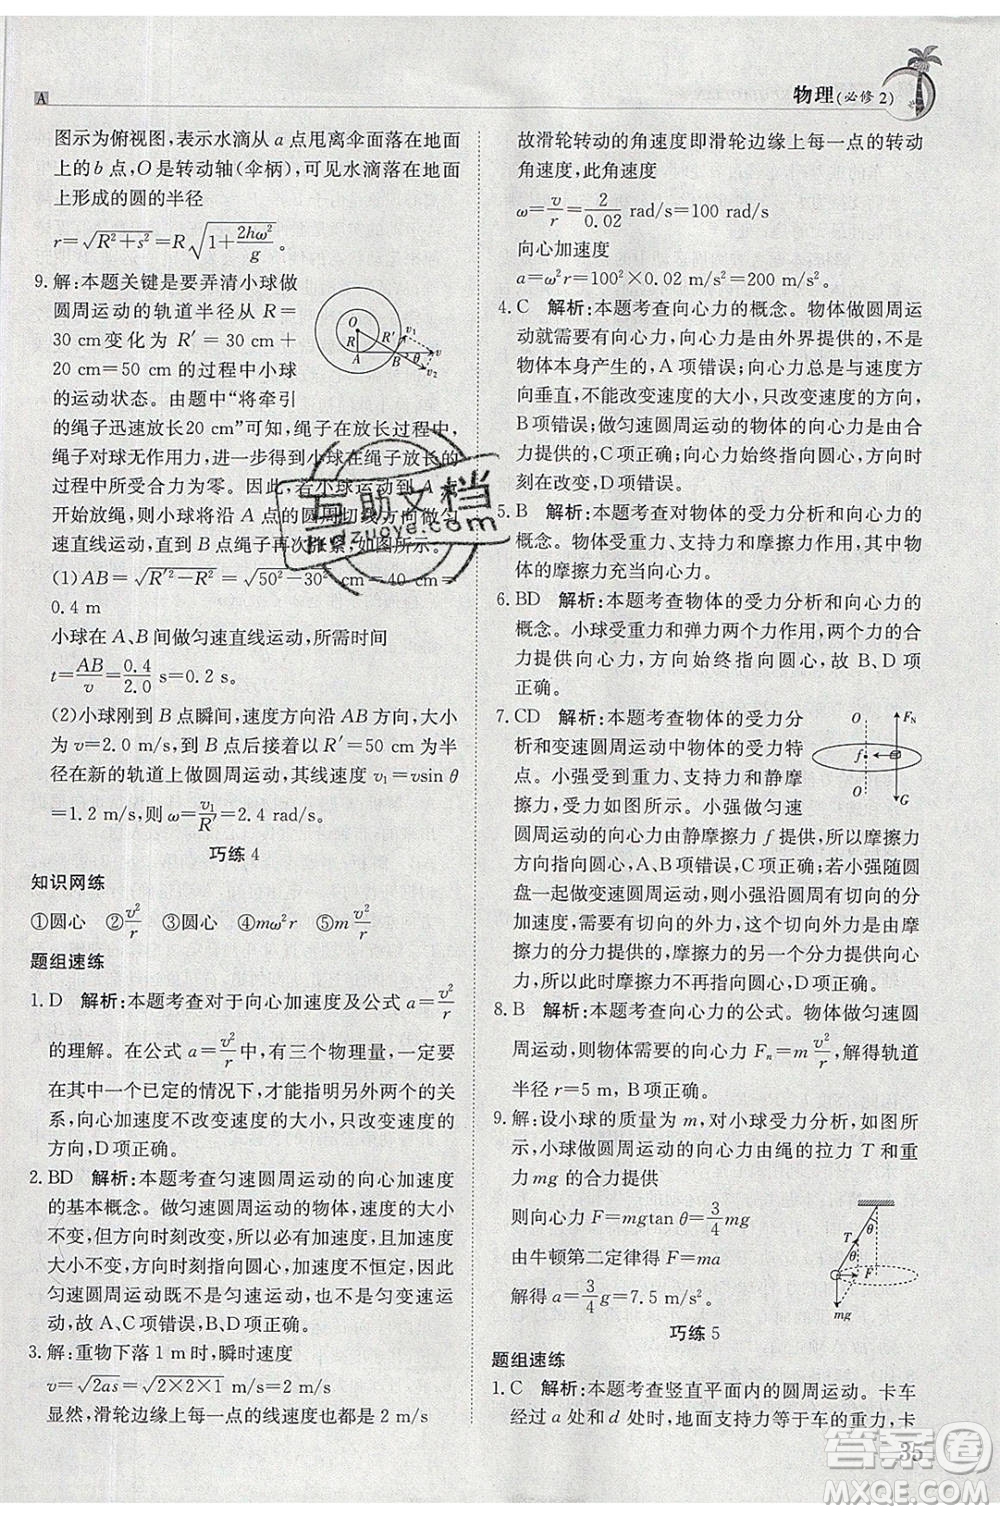 A
物理(必修2)
图示为俯视图,表示水滴从 a 点甩离伞面落在地面
上的 b 点,O 是转动轴(伞柄),可见水滴落在地面
上形成的圆的半径
r=√(R²+s²)=R√(1+2hω²/g)。
9. 解:本题关键是要弄清小球做
圆周运动的轨道半径从 R=
30 cm变化为 R′=30 cm+
20 cm=50 cm 的过程中小球
的运动状态。由题中“将牵引
的绳子迅速放长20 cm”可知,绳子在放长过程中,
绳子对球无作用力,忽略重力,小球在绳子放长的
过程中所受合力为零。因此,若小球运动到 A 点
开始放绳,则小球将沿 A 点的圆周切线方向做匀
速直线运动,直到 B 点绳子再次拉紧,如图所示。
(1)AB=√(R′²−R²)=√(50²−30²) cm=40 cm=
0.4 m
小球在 A、B 间做匀速直线运动,所需时间
t=AB/v=0.4/2.0 s=0.2 s。
(2)小球刚到 B 点瞬间,速度方向沿 AB 方向,大小
为 v=2.0 m/s,此时,在 B 点以后接着以 R′=50 cm为半
径在新的轨道上做圆周运动,其线速度 v₁=vsin θ
=1.2 m/s,则 ω=v₁/R′=2.4 rad/s。
O
R
A
B
θ
v₁
v
v₂
巧练 4
知识网练
①圆心 ②v²/r ③圆心 ④mω²r ⑤m v²/r
题组速练
1. D 解析:本题考查对于向心加速度及公式 a=v²/r
的理解。在公式 a=v²/r 中,有三个物理量,一定要
在其中一个已定的情况下,才能指明另外两个的关
系,向心加速度不改变速度的大小,只改变速度的
方向,D项正确。
2. BD 解析:本题考查匀速圆周运动的向心加速度
的基本概念。做匀速圆周运动的物体,速度的大小
不变,但方向时刻改变。向心加速度也是矢量,虽
大小不变,方向时刻指向圆心,方向时刻改变,因此
匀速圆周运动既不是匀速运动,也不是匀变速运
动。故 A、C项错误,B、D项正确。
3. 解:重物下落 1 m 时,瞬时速度
v=√(2as)=√(2×2×1) m/s=2 m/s
显然,滑轮边缘上每一点的线速度也都是 2 m/s,
故滑轮转动的角速度即滑轮边缘上每一点的转动
角速度,此角速度
ω=v/r=2/0.02 rad/s=100 rad/s
向心加速度
a=ω²r=100²×0.02 m/s²=200 m/s²。
4. C 解析:本题考查向心力的概念。物体做圆周运
动就需要有向心力,向心力是由外界提供的,不是
物体本身产生的,A 项错误;向心力总是与速度方
向垂直,不能改变速度的大小,只能改变速度方向,
B项错误;做匀速圆周运动的物体的合外力提供向
心力,C项正确;向心力始终指向圆心,方向
时刻在改变,D项错误。
5. B 解析:本题考查对物体的受力分析和向心力的
概念。物体受重力、支持力和摩擦力的作用,其中
物体的摩擦力充当向心力。
6. BD 解析:本题考查物体的受力分析和向心力的
概念。小球受重力和弹力两个力作用,两个力的合
力提供向心力,方向始终指向圆心,故 B、D项
正确。
7. CD 解析:本题考查物体的受力分
析和变速圆周运动中物体的受力特
点。小强受到重力、支持力和静摩
擦力,受力如图所示。小强做匀速
圆周运动的向心力由静摩擦力 f 提供,所以摩擦力
方向指向圆心,A、B项错误,C项正确;若小强随圆
盘一起做变速圆周运动,则小强沿圆周方向的分力
加速度,就需要有切向的外力,应由圆盘对他的摩
擦力的分力提供,摩擦力的另一个分力提供向心
力,所以摩擦力不再指向圆心,D项正确。
O
F_N
f
O
G
8. B 解析:本题考查向心力的公式。物体做匀速圆
周运动,所以物体需要的向心力 Fₙ=m v²/r,解得轨道
半径 r=5 m,B项正确。
9. 解:设小球的质量为 m,对小球受力分析,如图所
示,小球做圆周运动的向心力由绳的拉力 T 和重
力 mg 的合力提供
则向心力 F=mgtan θ=3/4 mg
由牛顿第二定律得 F=ma
解得 a=3/4 g=7.5 m/s²。
T
θ
θ
F
mg
巧练 5
题组速练
1. C 解析:本题考查竖直平面内的圆周运动。卡车
经过 a 处和 d 处时,地面支持力等于车的重力,卡
35
互助文档
Hdzuoye.com
答案圈
MXQE.COM